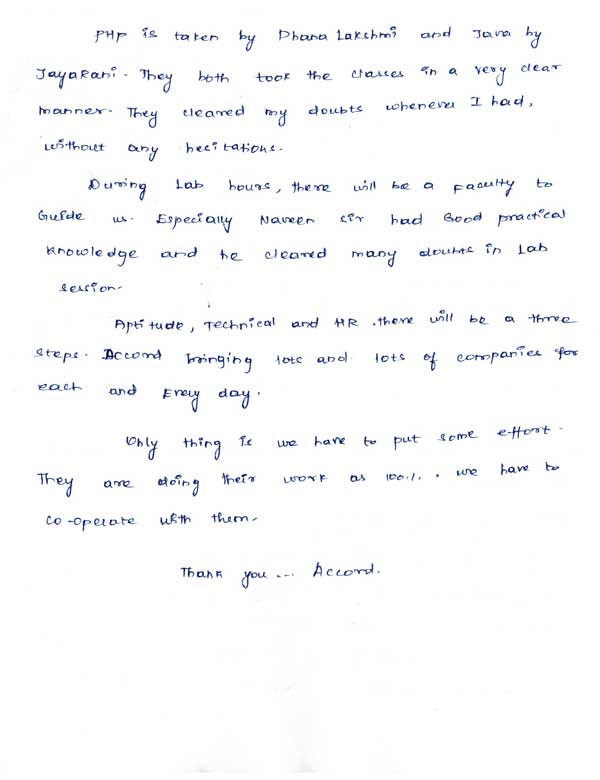 PHP is taken by Dhana Lakshmi and Java by
JayaRani. They both took the classes in a very clear
manner. They cleared my doubts whenever I had,
without any hecitations.
During Lab hours, there will be a Faculty to
Guide us. Especially Naveen sir had Good practical
knowledge and he cleared many doubts in Lab
session.
Aptitude, Technical and HR. there will be a three
steps. Accord bringing lots and lots of companies for
each and Every day.
Only thing is we have to put some effort.
They are doing their work as 100%. we have to
co-operate with them.
Thank you ... Accord.